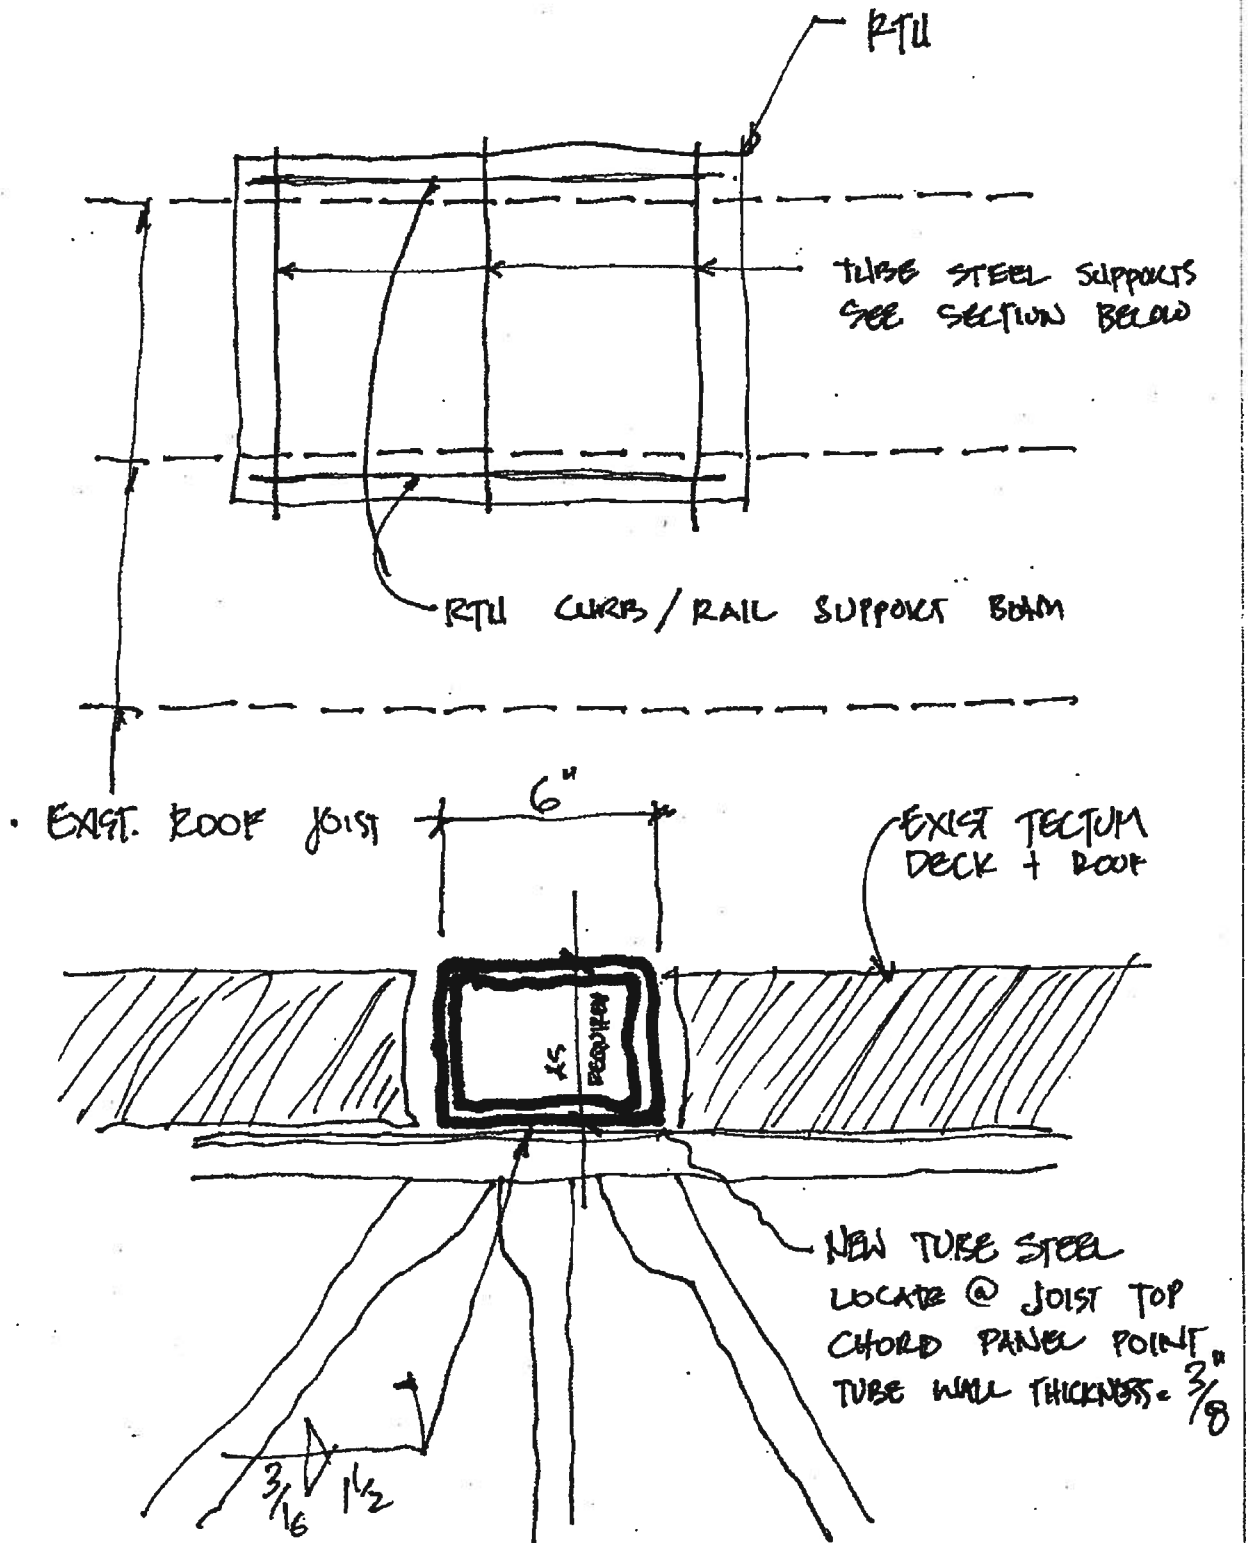 RTU
TUBE STEEL SUPPORTS
SEE SECTION BELOW
RTU CURB/RAIL SUPPORT BEAM
EXIST. ROOF JOIST
6"
EXIST TECTUM
DECK + ROOF
AS
REQUIRED
NEW TUBE STEEL
LOCATE @ JOIST TOP
CHORD PANEL POINT
TUBE WALL THICKNESS = 3/8"
3/16 1 1/2